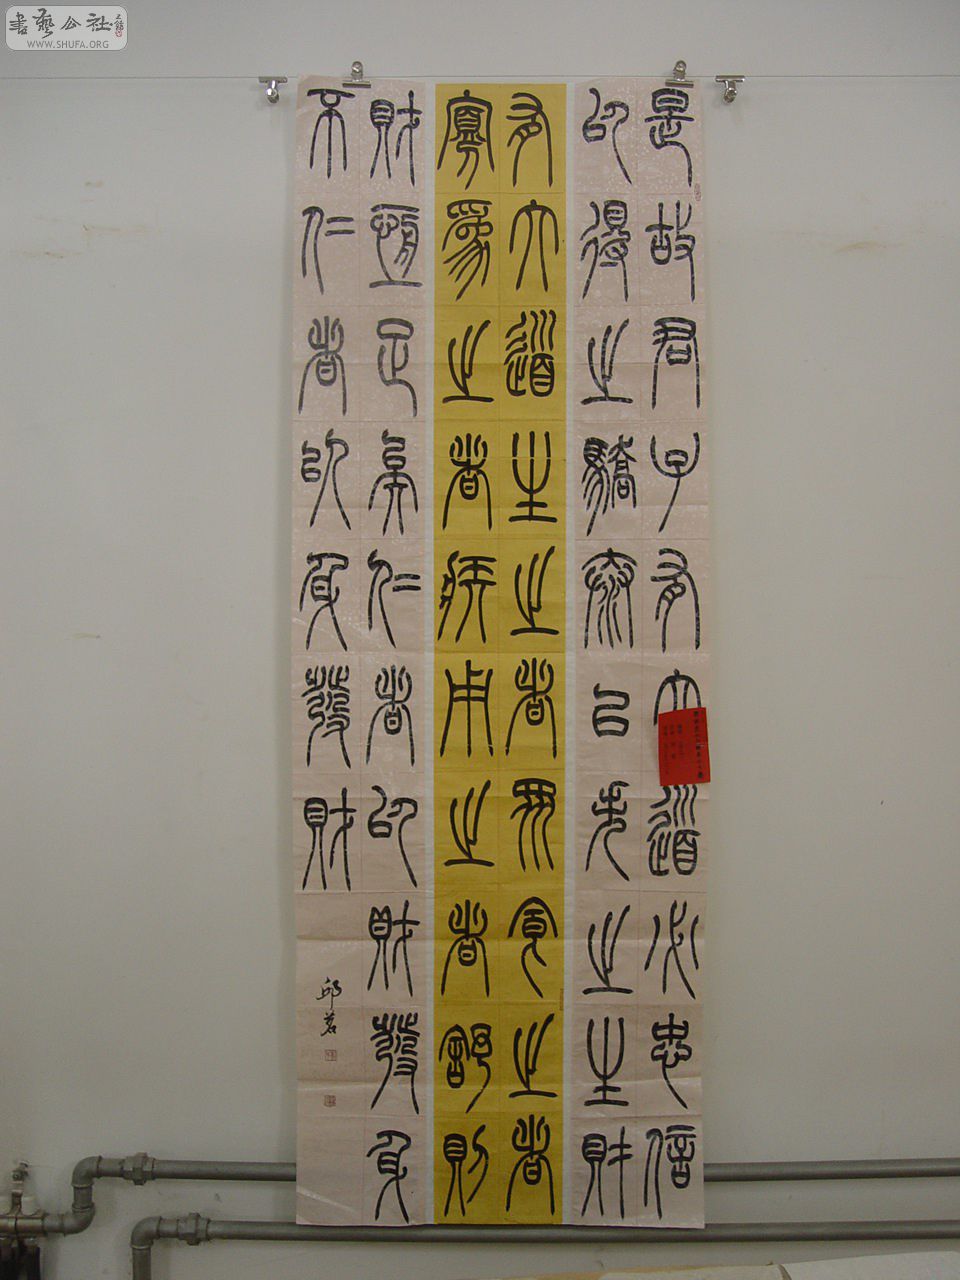 書藝公社
WWW.SHUFA.ORG
是故君子有大道必忠信
以得之驕泰以失之生財
有大道生之者眾食之者
寡爲之者疾用之者舒則
財恆足矣仁者以財發身
不仁者以身發財
邱茗